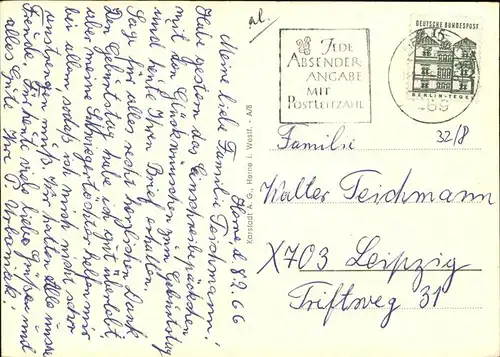 Herne d. 8.9.66
Meine liebe Familie Teichmann!
Habe gestern das Einschreibepäckchen
mit den Glückwünschen zum Geburtstag
und heute Ihren Brief erhalten.
Sage für alles recht herzlichen Dank
Den Geburtstag habe ich gut überlebt,
aber meine Schwiegertochter half mir
bei allem sodaß ich mich nicht sehr
anstrengen muß. Wir hatten alle
Freude. Für heute viele liebe Grüße und
alles Gute Ihre P. Urbaniak.
al.
Karstadt A.G., Herne i. Westf. - A/8
JEDE
ABSENDER
ANGABE
MIT
POSTLEITZAHL
DEUTSCHE BUNDESPOST
15
BERLIN-TEGEL
469
32/8
Familie
Walter Teichmann
X703 Leipzig
Triftweg 31